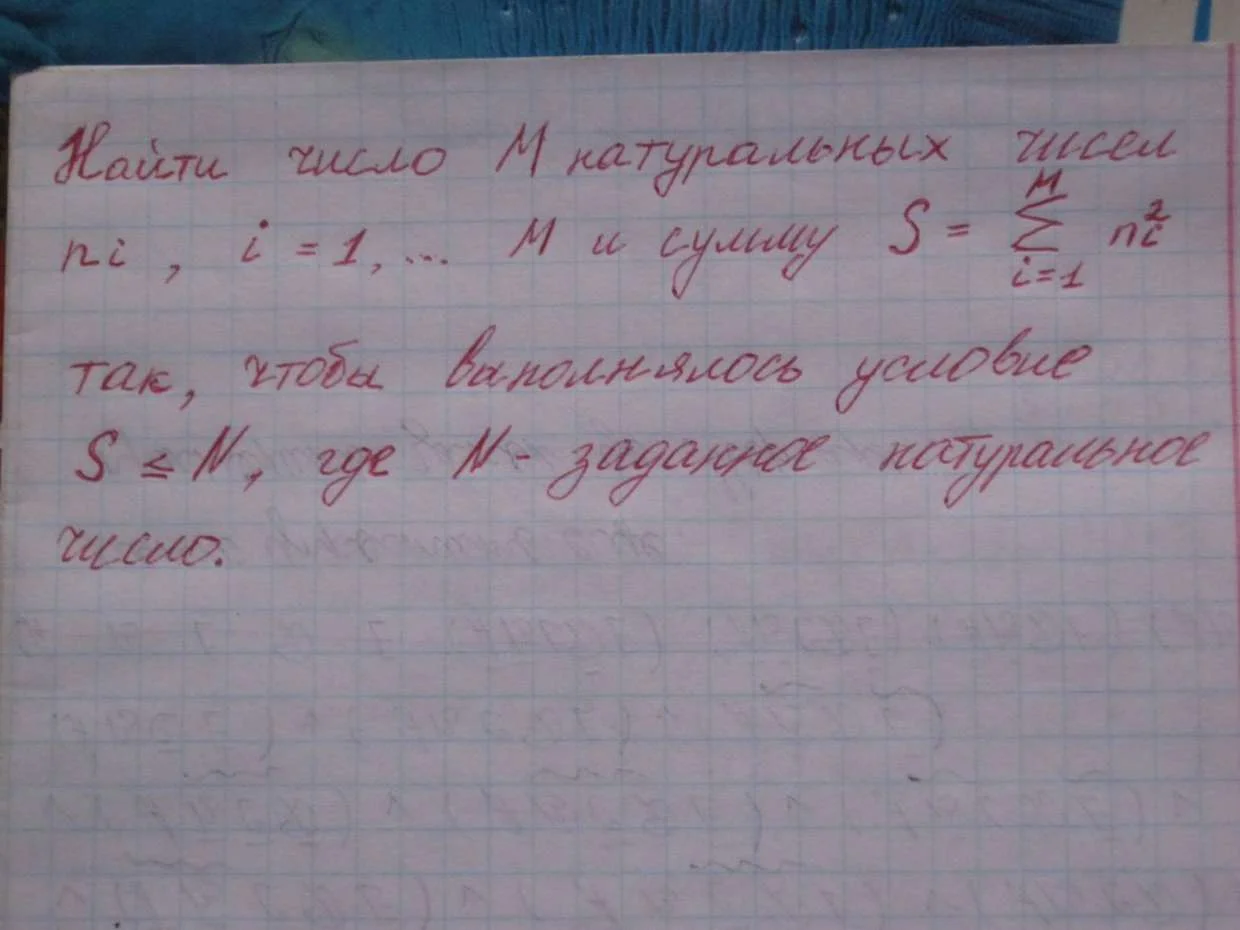 Найти число M натуральных чисел
ni, i = 1, ... M и сумму S = ∑ᴹᵢ₌₁ nᵢ²
так, чтобы выполнялось условие
S ≤ N, где N - заданное натуральное
число.